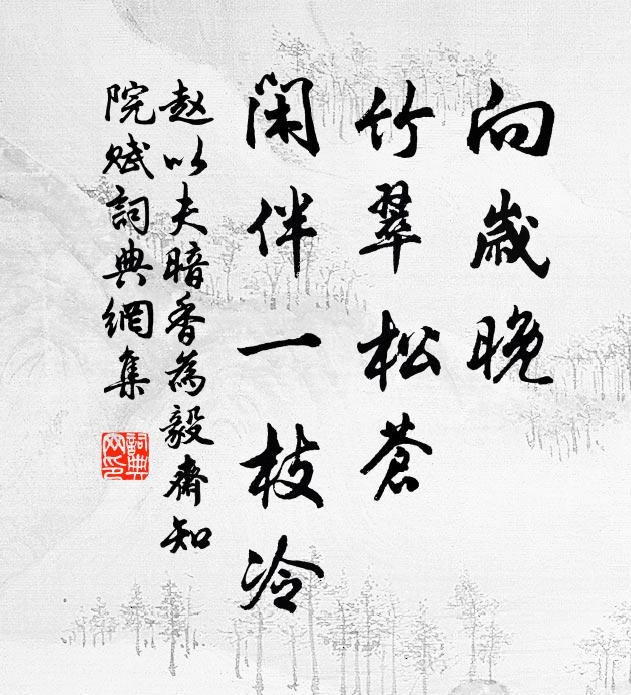 向歲晚
竹翠松蒼
閑伴一枝冷
赵以夫暗香為毅齋知
院赋詞典網集
詞典网印